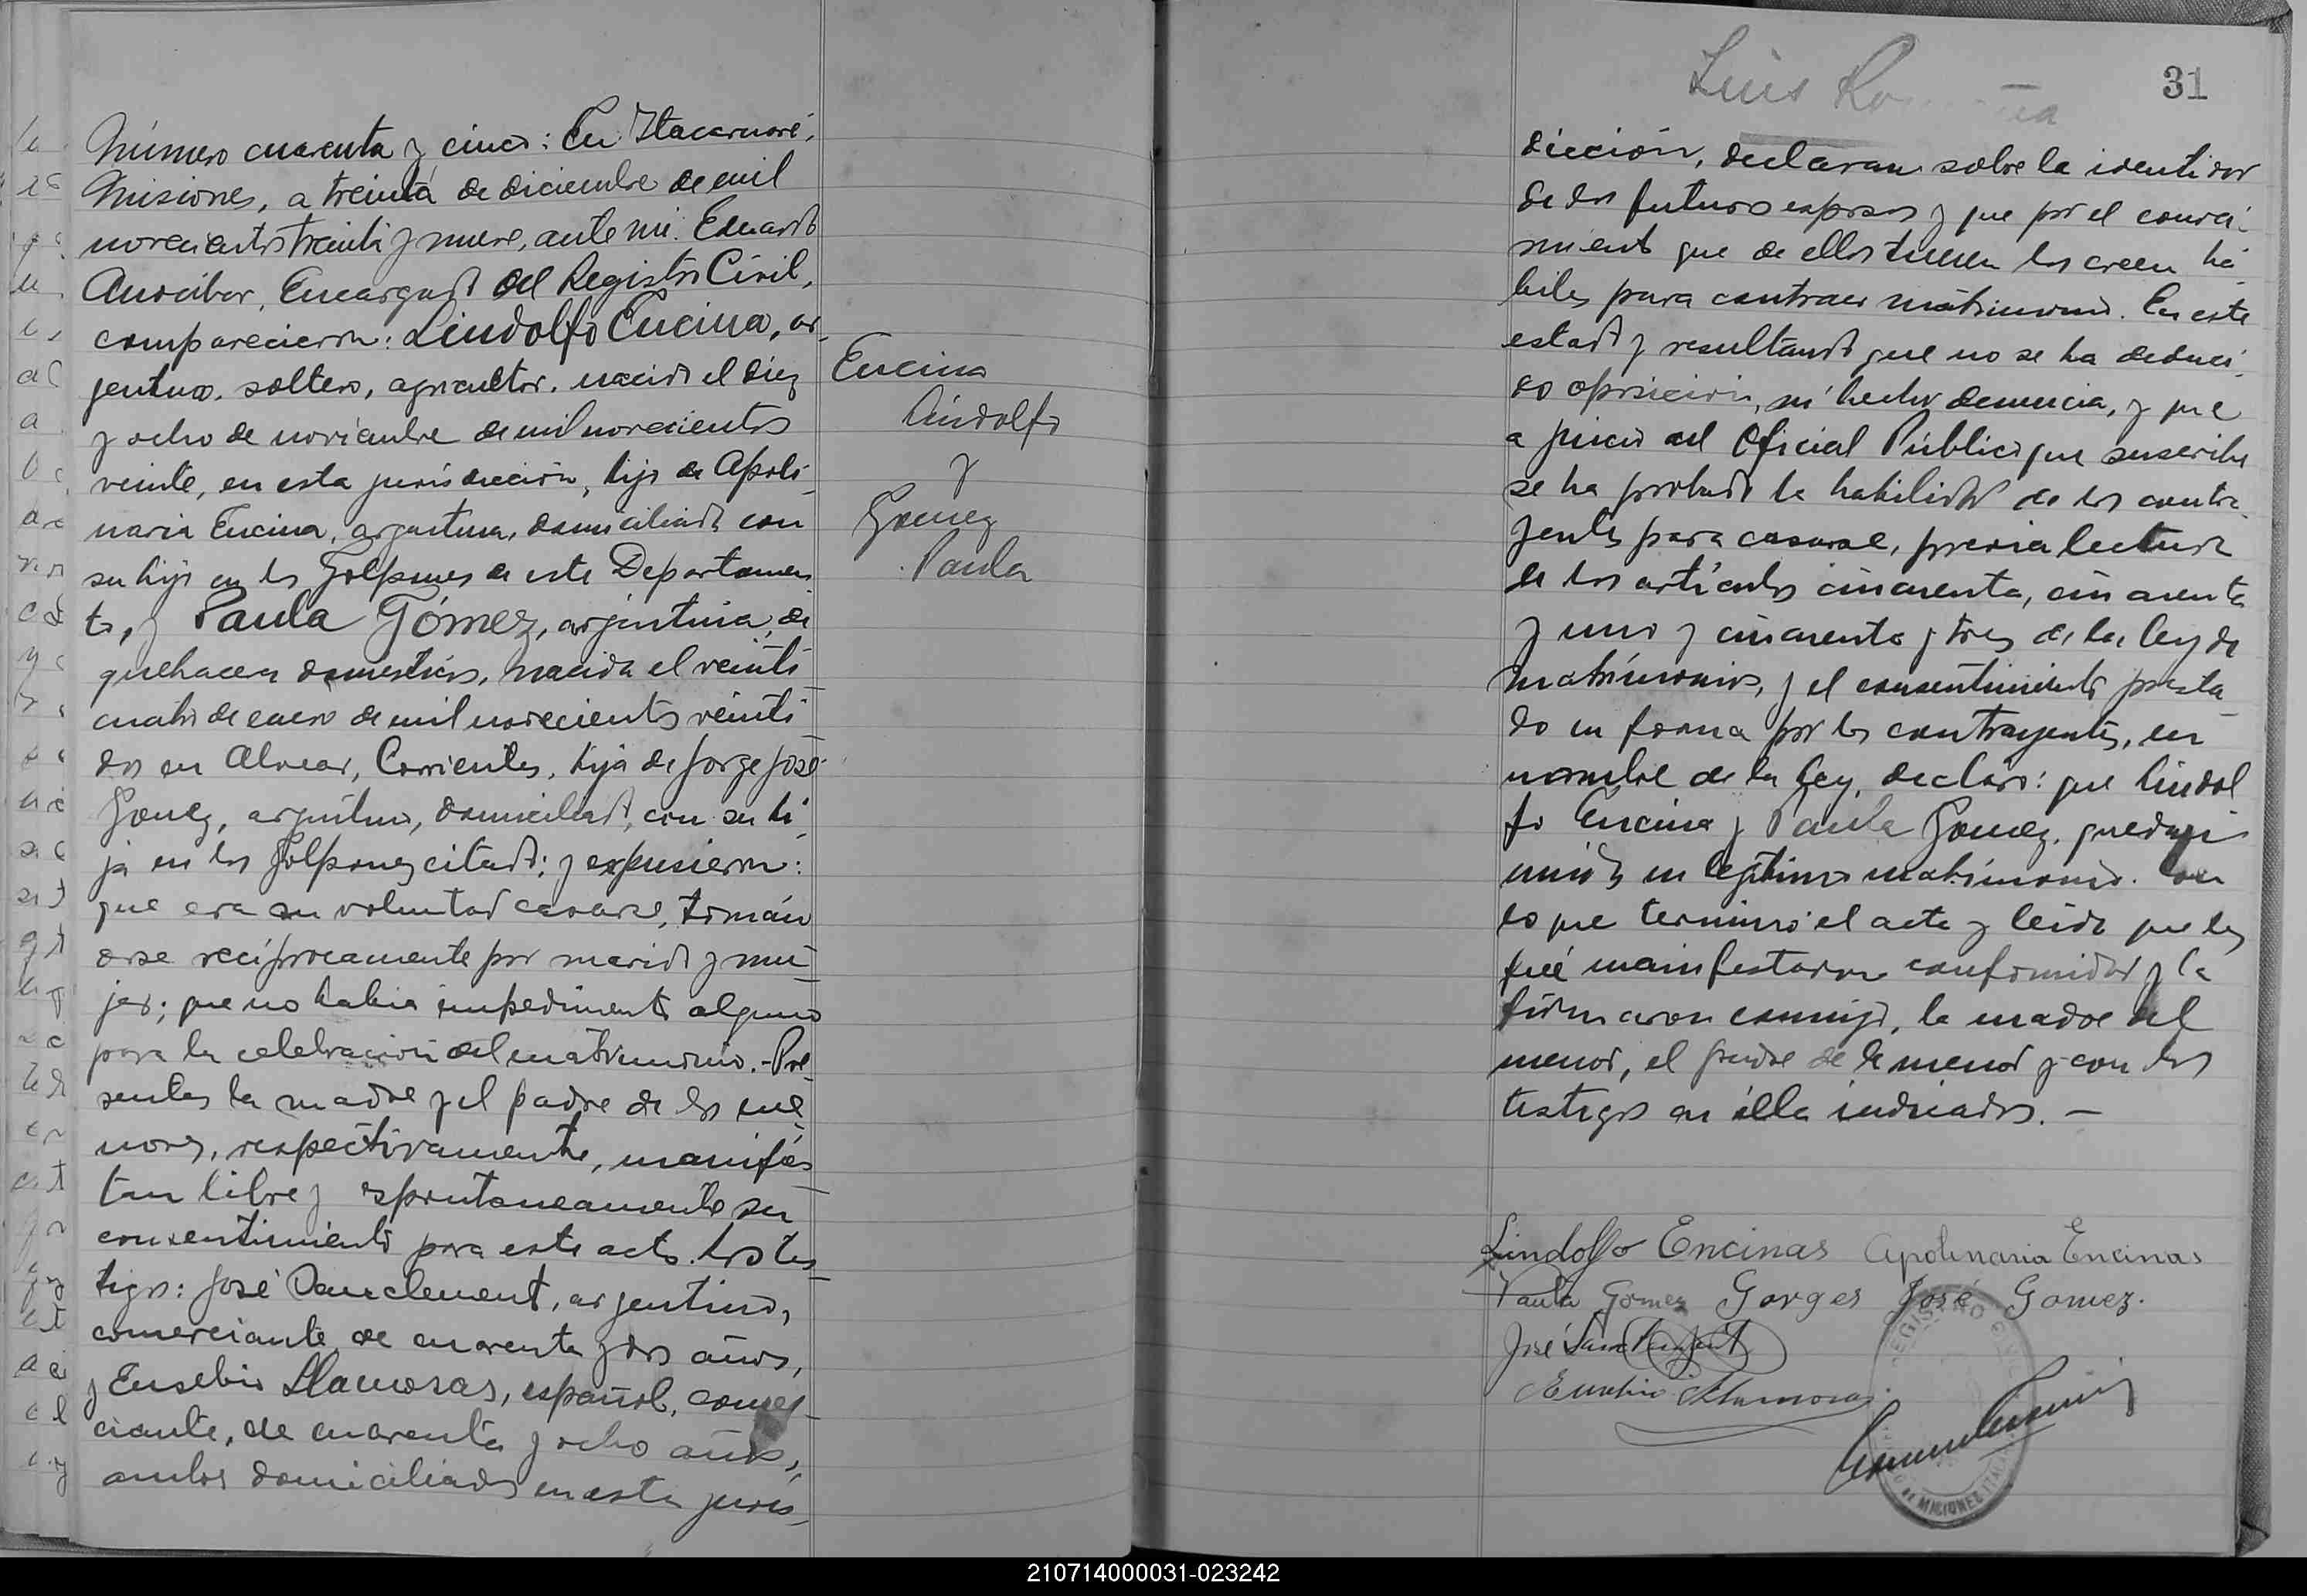 Número cuarenta y cinco: En Itacaruaré,
Misiones, a treinta de diciembre de mil
novecientos treinta y nueve, ante mi: Eduardo
Encargado del Registro Civil,
comparecieron: Lindolfo Encina, ar
jentino, soltero, agricultor, nacido el diez
y ocho de noviembre de mil novecientos
veinte, en esta jurisdicción, hijo de Apoli_
naria Encina, argentina, domiciliada con
su hijo en los Galpones de este Departamen
to, y Paula Gómez, arjentina, de
quehaceres domésticos, nacida el veinti
cuatro de enero de mil novecientos veinti
dos en Alvear, Corrientes, hija de Jorge José
Gomez, arjentino, domiciliado, con su hi_
ja en los Galpones citado; y expusieron:
que era su voluntad casarse, tomán
dose recíprocamente por marido y mu_
jer; que no habia impedimento alguno
para la celebración del matrimonio.- Pre
sentes la madre y el padre de los me_
nores, respectivamente, manifies
tan libre y espontaneamente su
consentimiento para este acto. Los tes_
tigos: José Sanclement, arjentino,
comerciante de cuarenta y dos años,
y Eusebio Llamosas, español, comer_
ciante, de cuarenta y ocho años,
ambos domiciliados en esta juris_
Encina
Lindolfo
y
Gomez
Paula
Luis
31
dicción, declaran sobre la identidad
de los futuros esposos y que por el conoci_
miento que de ellos tienen los creen há
biles para contraer matrimonio. En este
estado y resultando que no se ha deduci_
do oposición, ni hecho denuncia, y que
a juicio del Oficial Público que suscribe
se ha probado la habilidad de los contra_
yentes para casarse, previa lectura
de los artículos cincuenta, cincuenta
y uno y cincuenta y tres de la ley de
matrimonio, y el consentimiento presta
do en forma por los contrayentes, en
nombre de la ley, declaro: que Lindol
fo Encina y Paula Gomez, quedan
unidos en legítimo matrimonio. Con
lo que terminó el acta y leida que les
fué manifestaron conformidad y la
firmaron conmigo, la madre del
menor, el padre de la menor y con los
testigos en élla indicados. —
Lindolfo Encinas Apolinaria Encinas
Paula Gomez Gorges José Gomez.
José Sanclement
Eusebio Llamosas
REGISTRO CIVIL
MISIONES
210714000031-023242